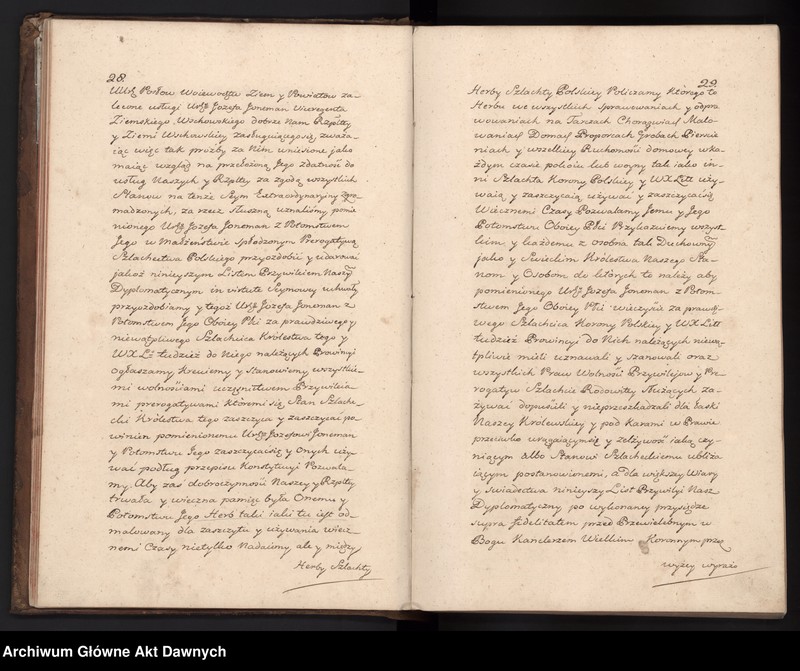 28
Urż Posłow Woiewodztw Ziem y Powiatow za-
lecone usługi Urż Jozefa Joneman Viceregenta
Ziemskiego Wschowskiego dobrze Nam Rzpltty
y Ziemi Wschowskiey zasługuiącego się, zważa-
iąc więc tak prożby za Nim wniesione jako
maiąc wzgląd na przełożoną Jego zdatność do
usług Naszych y Rzpltty za zgodą wszystkich
Stanow na tenże Seym Extraordynaryiny zgro-
madzonych, za rzecz słuszną uznaliśmy pomie
nionego Urż Jozefa Joneman z Potomstwem
Jego w Małżeństwie spłodzonym Prerogatywą
Szlachectwa Polskiego przyozdobić y udarować
jakoż ninieyszym Listem Przywileiem Naszym
Dyplomatycznym in virtute Seymowey uchwały
przyozdobiamy y tegoż Urż Jozefa Joneman z
Potomstwem Jego Oboiey Płci za prawdziwego y
niewątpliwego Szlachcica Krolestwa tego y
WXLi tudzież do Niego należących Prowincyi
ogłaszamy, Kreuiemy y Stanowiemy wszystkie-
mi wolnościami uczęsnictwem Przywileia-
mi prerogatywami ktoremi się Stan Szlache-
cki Krolestwa tego zaszczyca y zaszczycać po-
winien pomienionemu Urż Jozefowi Joneman
y Potomstwu Jego zaszczycać się y onych uży-
wać podług przepisu Konstytucyi Pozwala-
my. Aby zaś dobroczynności Naszey y Rzpltty
trwała y wieczna pamięć była Onemu y
Potomstwu Jego Herb taki iaki tu iest od-
malowany dla zaszczytu y używania wiecz-
nemi Czasy nietylko Nadaiemy, ale y między
Herby Szlachty
29
Herby Szlachty Polskiey Policzamy Ktorego to
Herbu we wszystkich sprawowaniach y odpra
wowaniach na Tarzach Chorągwiach Malo-
waniach Domach Proporcach Grobach Pierście
niach y wszelkiey Ruchomości domowey w ka-
żdym czasie pokoiu lub woyny tak iako in-
ni Szlachta Korony Polskiey y WXLitt uży-
waią y zaszczycaią używać y zaszczycać się
Wiecznemi Czasy Pozwalamy Jemu y Jego
Potomstwu Oboiey Płci Przykazuiemy wszyst-
kim y każdemu z osobna tak Duchownym
jako y Swieckim Krolestwa Naszego Sta-
nom y Osobom do ktorych to należy aby
pomienionego Urż Jozefa Joneman z Potom-
stwem Jego Oboiey Płci wieczyście za prawdzi-
wego Szlachcica Korony Polskiey y WXLitt
tudzież Prowincyi do Nich należących niewą-
tpliwie mieli uznawali y szanowali oraz
wszystkich Praw Wolności Przywileiow y Pre-
rogatyw Szlachcie Rodowitey służących za-
żywać dopuścili y nieprzeszkadzali dla łaski
Naszey Krolewskiey y pod karami w Prawie
przeciwko urągaiącym się y zelżywość iaką czy-
niącym albo Stanowi Szlacheckiemu ubliża
iącym postanowionemi, a dla większey Wiary
y Swiadectwa ninieyszy List Przywiley Nasz
Dyplomatyczny po wykonaney przysiędze
supra fidelitatem przed Przewielebnym w
Bogu Kanclerzem Wielkim Koronnym przez
wyżey wyraźo
Archiwum Główne Akt Dawnych